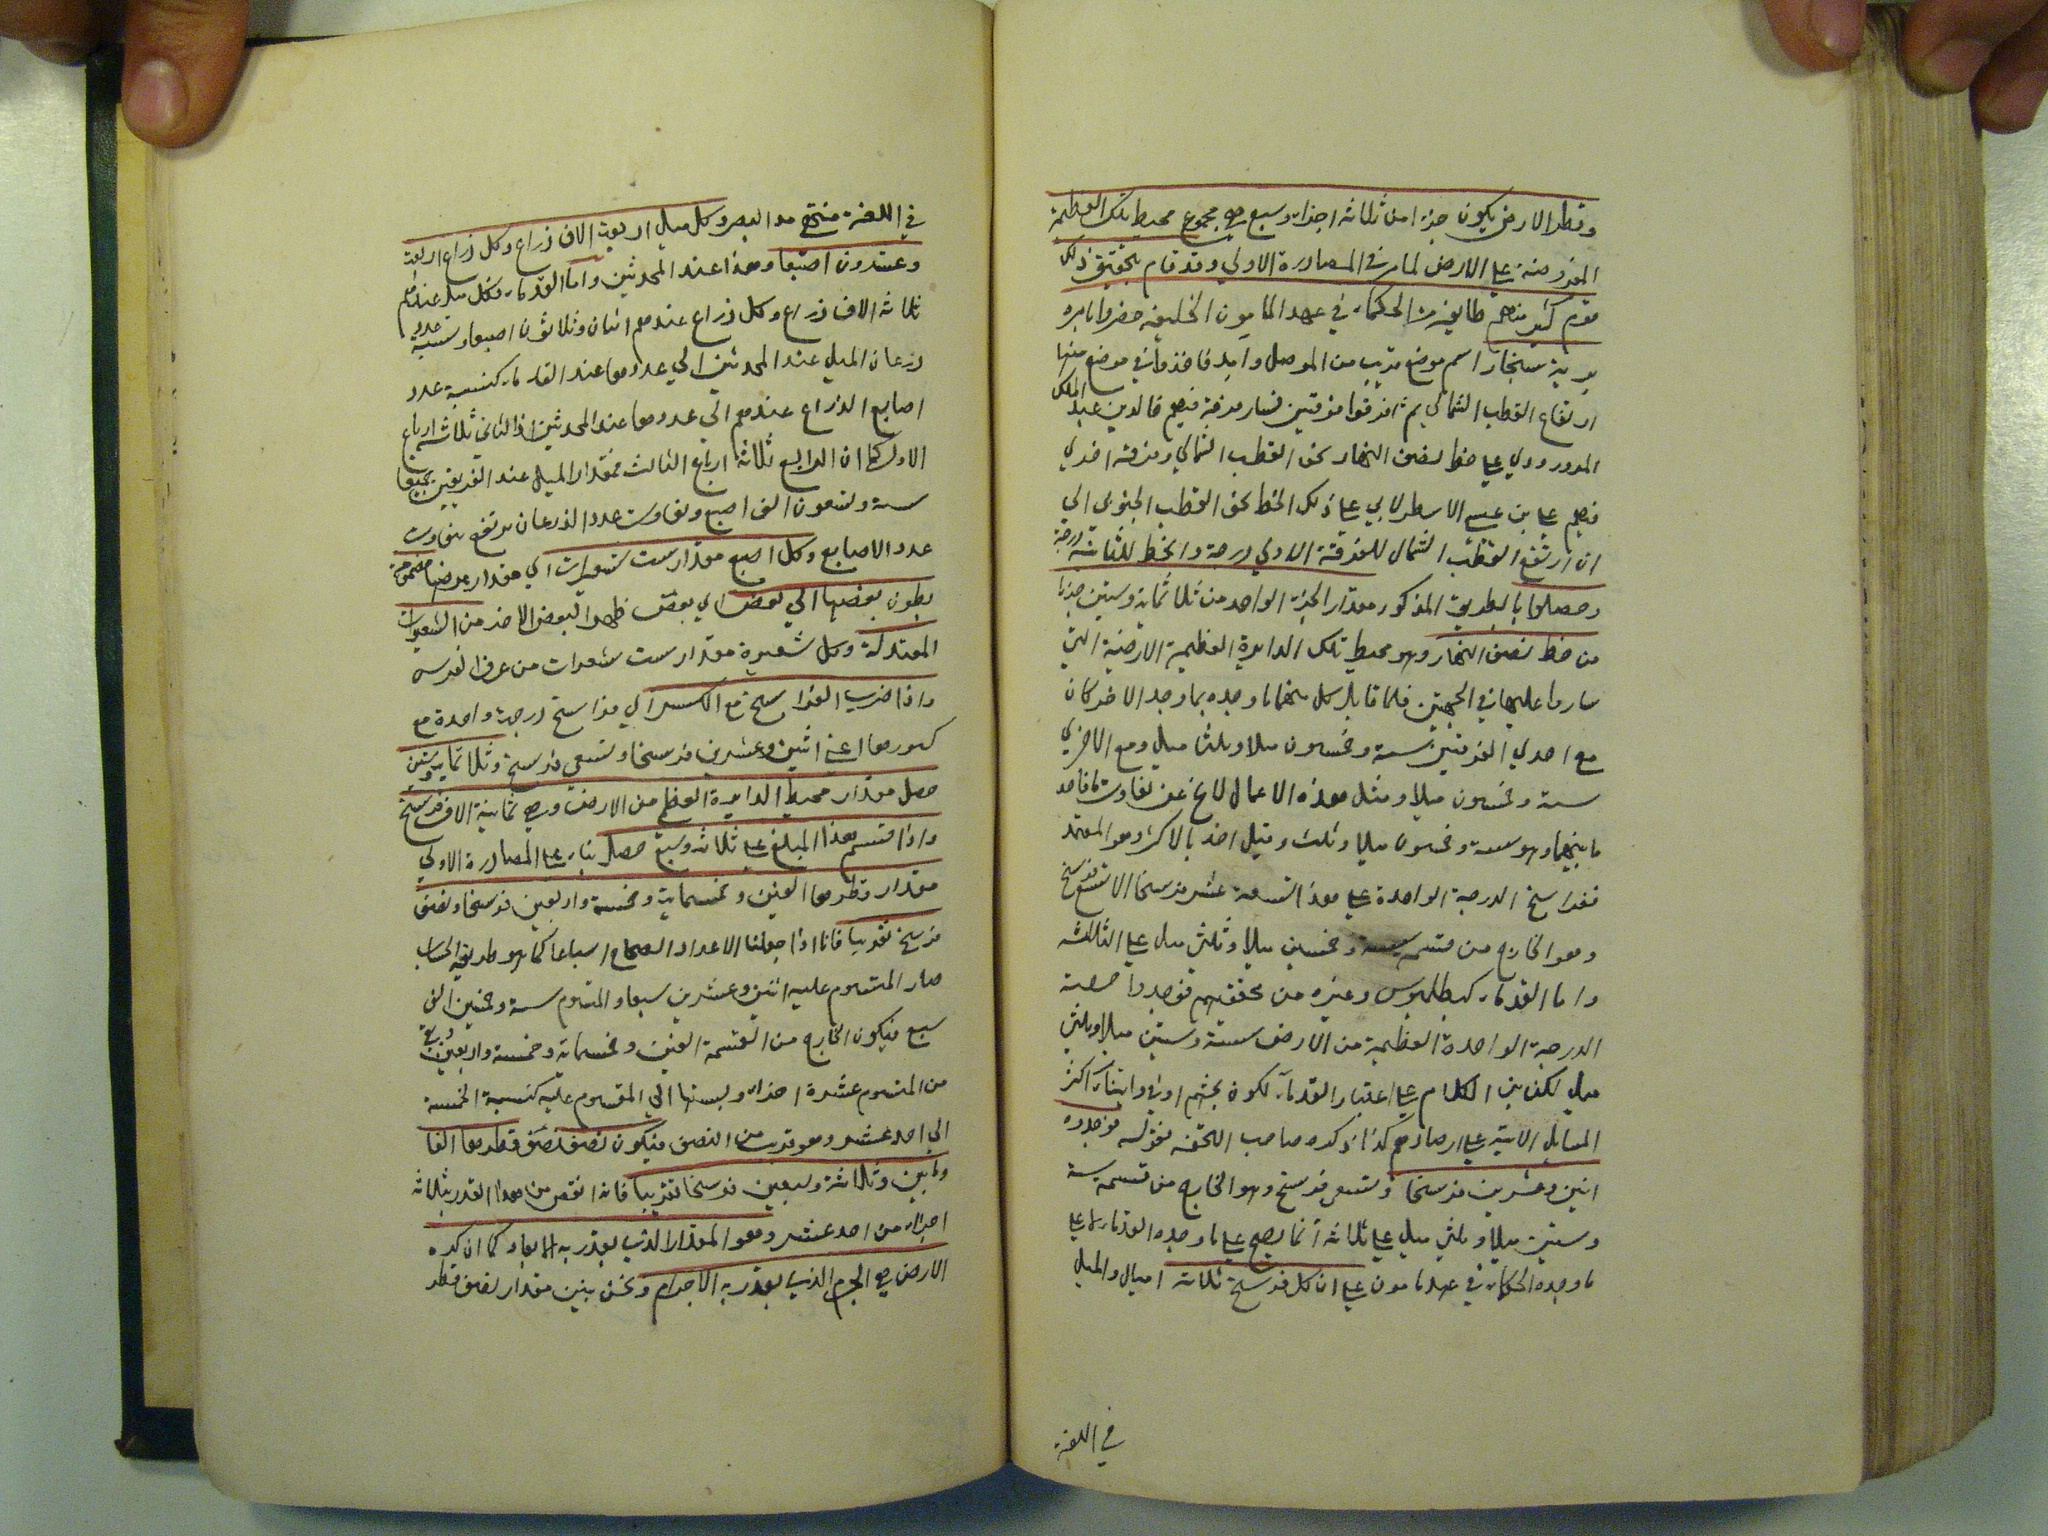 وقطر الارض يكون جزءا من ثلاثة اجزاء وسبع هي مجموع محيط تلك العظيمة
المفروضة على الارض لما مر في المصادرة الاولي وقد قام بتحقيق ذلك
قوم كثير منهم طايفة من الحكماء في عهد المامون الخليفة حضروا بامره
برية سنجار اسم موضع قريب من الموصل وآمد فاخذوا في موضع منها
ارتفاع القطب الشمالي ثم افترقوا فرقتين فسار فرقة فيهم خالد بن عبد الملك
المروروذي على خط نصف النهار نحو القطب الشمالي وفرقة اخري
فيهم علي بن عيسى الاسطرلابي على ذلك الخط نحو القطب الجنوبي الي
ان ارتفع القطب الشمال للفرقة الاولي درجة وانحط للثانية درجة
وحصلوا بالطريق المذكور مقدار الجزء الواحد من ثلاثمائة وستين جزءا
من خط نصف النهار وهو محيط تلك الدايرة العظيمة الارضية التي
ساروا عليها في الجهتين فلما قابل كل منهما ما وجده بما وجد الاخر كان
مع احدي الفرقتين ستة وخمسون ميلا وثلثا ميل ومع الاخري
ستة وخمسون ميلا ومثل هذه الاعمال لا يخ عن تفاوت ما فاخذ
ما بينهما وهو ستة وخمسون ميلا وثلث وقيل اخذ بالاكثر وهو المعتمد
ففراسخ الدرجة الواحدة على هذا تسعة عشر فرسخا الا تسع فرسخ
وهو الخارج من قسمة ستة وخمسين ميلا وثلثي ميل على الثلاثة
واما القدماء كبطلميوس وغيره من محققيهم فوجدوا حصة
الدرجة الواحدة العظيمة من الارض ستة وستين ميلا وثلثي
ميل لكن بني الكلام على اعتبار القدماء لكونه بحثهم اوفي وابتناء اكثر
المسائل الاتية على ارصادهم كذا ذكره صاحب التحفة بقوله فوجدوه
اثنين وعشرين فرسخا وتسعي فرسخ وهو الخارج من قسمة ستة
وستين ميلا وثلثي ميل على ثلاثة انما يصح على ما وجده القدماء لا على
ما وجده الحكماء في عهد مامون على ان كل فرسخ ثلاثة اميال والميل
في اللغة
في اللغة منتهي مد البصر وكل ميل اربعة الاف ذراع وكل ذراع اربعة
وعشرون اصبعا وهذا عند المحدثين واما القدماء فكل ميل عندهم
ثلاثة الاف ذراع وكل ذراع عندهم اثنان وثلاثون اصبعا ونسبة عدد
ذرعان الميل عند المحدثين الي عددها عند القدماء كنسبة عدد
اصابع الذراع عندهم الي عددها عند المحدثين اذ الثاني ثلاثة ارباع
الاول كما ان الرابع ثلاثة ارباع الثالث فمقدار الميل عند الفريقين جميعا
ستة وتسعون الف اصبع وتفاوت عدد الذرعان يرتفع بتفاوت
عدد الاصابع وكل اصبع مقدار ست شعيرات اي مقدار عرضها مضمومة
بطون بعضها الي بعض اي بعض ظهر البعض الاخر من الشعيرات
المعتدلة وكل شعيرة مقدار ست شعرات من عرف الفرس
واذا ضرب الفراسخ مع الكسر اي فراسخ درجة واحدة مع
كسورها اعني اثنين وعشرين فرسخا وتسعي فرسخ وثلاثمائة وستين
حصل مقدار محيط الدايرة العظمي من الارض وهي ثمانية الاف فرسخ
واذا قسم هذا المبلغ على ثلاثة وسبع حصل بناء على المصادرة الاولي
مقدار قطرها الفين وخمسمائة وخمسة واربعين فرسخا ونصف
فرسخ تقريبا فانا اذا جعلنا الاعداد الصحاح اسباعا كما هو طريق الحساب
صار المقسوم عليه اثنين وعشرين سبعا والمقسوم ستة وخمسين الف
سبع فيكون الخارج من القسمة الفين وخمسمائة وخمسة واربعين وبقي
من المقسوم عشرة اجزاء ونسبتها الي المقسوم عليه كنسبة الخمسة
الي احد عشر وهو قريب من النصف فيكون نصف قطرها الفا
ومأتين وثلاثة وسبعين فرسخا تقريبا فانه انقص من هذا القدر بثلاثة
اجزاء من احد عشر وهو المقدار الذي يقدر به الابعاد كما ان كره
الارض هي الجرم الذي يقدر به الاجرام ونحن نبين مقدار نصف قطر